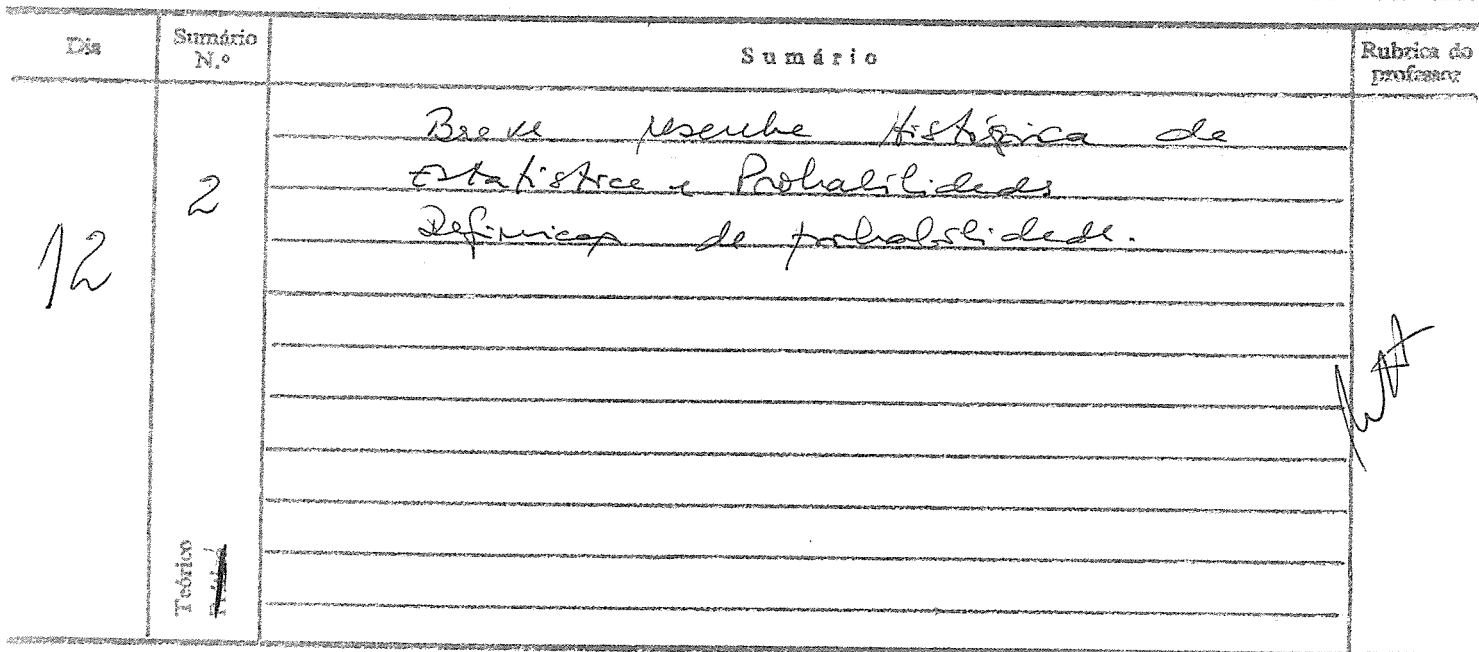 Dia
Sumário N.º
Sumário
Rubrica do professor
12
2
Breve resenha Histórica de
Estatística e Probabilidades
Definição de probabilidade.
Teórico